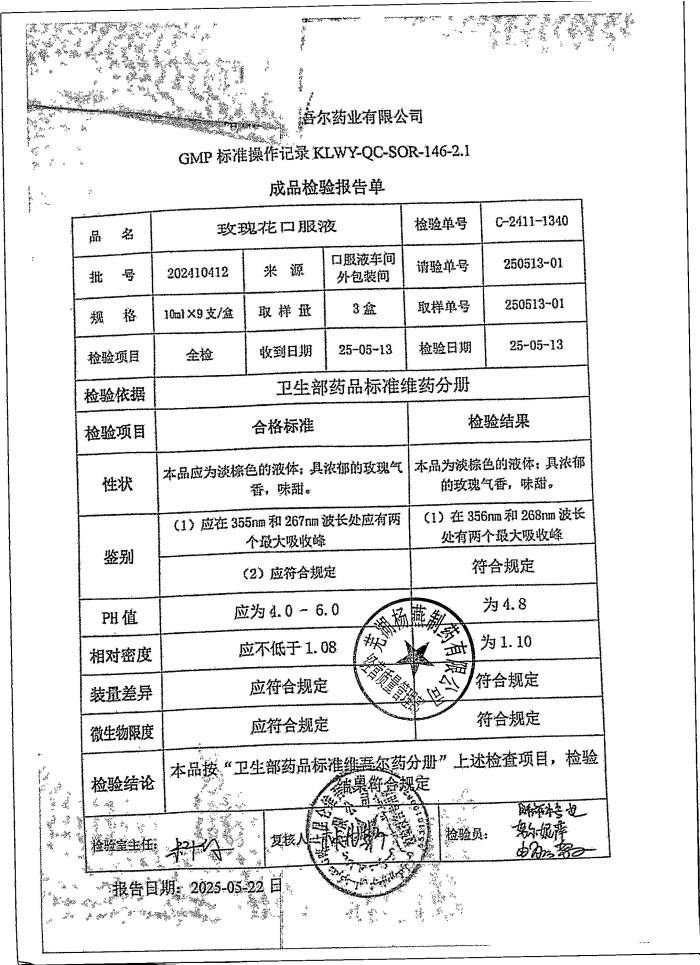 吾尔药业有限公司
GMP 标准操作记录 KLWY-QC-SOR-146-2.1
成品检验报告单
品 名 玫瑰花口服液 检验单号 C-2411-1340
批 号 202410412 来 源 口服液车间外包装间 请验单号 250513-01
规 格 10ml×9支/盒 取 样 量 3盒 取样单号 250513-01
检验项目 全检 收到日期 25-05-13 检验日期 25-05-13
检验依据 卫生部药品标准维药分册
检验项目 合格标准 检验结果
性状 本品应为淡棕色的液体；具浓郁的玫瑰气香，味甜。 本品为淡棕色的液体；具浓郁的玫瑰气香，味甜。
鉴别 （1）应在 355nm 和 267nm 波长处应有两个最大吸收峰 （1）在 356nm 和 268nm 波长处有两个最大吸收峰
（2）应符合规定 符合规定
PH 值 应为 4.0 - 6.0 为 4.8
相对密度 应不低于 1.08 为 1.10
装量差异 应符合规定 符合规定
微生物限度 应符合规定 符合规定
检验结论 本品按“卫生部药品标准维吾尔药分册”上述检查项目，检验
结果符合规定
芜湖杨燕制药有限公司
检验室主任： 复核人： 检验员：
报告日期：2025-05-22 日